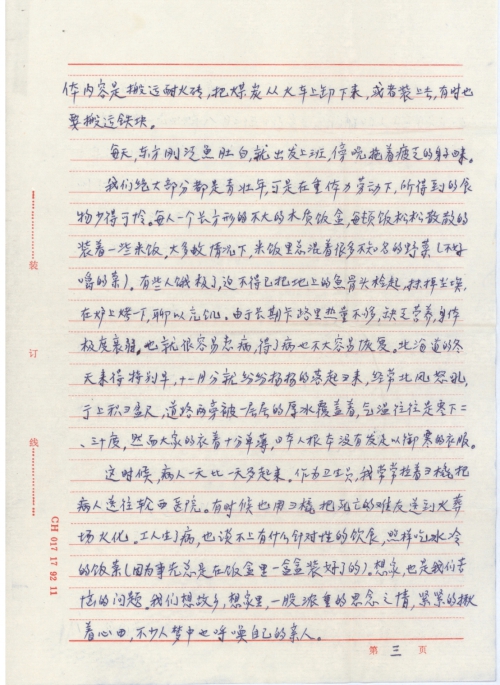 体内容是搬运耐火砖,把煤炭从火车上卸下来,或者装上去,有时也
要搬运铁块。
每天,东方刚泛鱼肚白,就出发上班,傍晚拖着疲乏的身子回来。
我们绝大部分都是青壮年,可是在重体力劳动下,所得到的食
物少得可怜。每人一个长方形的不大的木质饭盒,每顿饭松松散散的
装着一些米饭,大多数情况下,米饭里总混着很多不知名的野菜(不好
嚼的菜)。有些人饿极了,迫不得已把地上的鱼骨头捡起,抹抹尘埃,
在炉上烤一下,聊以充饥。由于长期卡路里热量不够,缺乏营养,身体
极度衰弱。也就很容易患病,得了病也不大容易恢复。北海道的冬
天来得特别早,十一月分就纷纷扬扬的落起雪来,经常北风怒吼,
于上积雪盈尺,道路两旁被一层层的厚冰覆盖着,气温往往是零下二
、三十度,然而大家的衣着十分单薄,日本人根本没有发足以御寒的衣服。
这时候,病人一天比一天多起来。作为卫生员,我常常拉着雪橇把
病人送往轮西医院。有时候也用雪橇把死亡的难友送到火葬
场火化。工人生了病,也谈不上有什么针对性的饮食,照样吃冰冷
的饭菜(因为事先总是在饭盒里一盒盒装好了的)。想家,也是我们苦
恼的问题,我们想故乡,想家里,一股浓重的思念之情,紧紧的揪
着心田,不少人梦中也呼唤自己的亲人。
第 三 页
装
订
线
CH 017 17 92 11